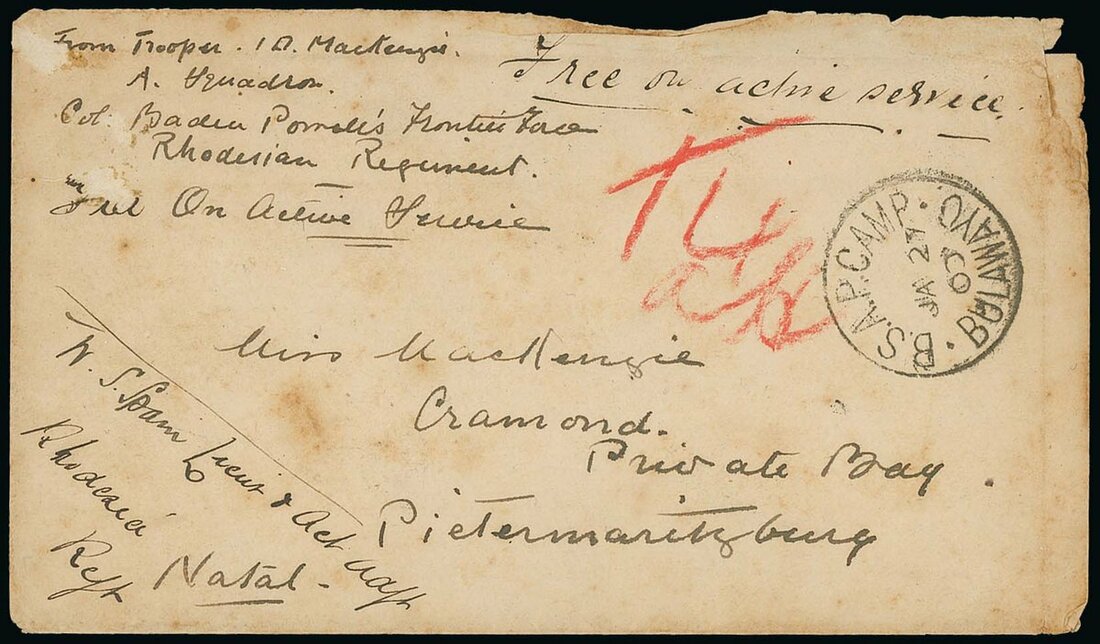 From Trooper. I D. MacKenzie.
A. Squadron.
Col. Baden Powell's Frontier Force
Rhodesian Regiment.
On Active Service
Free on active service.
B.S.A.P. CAMP. BULAWAYO
JA 27
00
Miss MacKenzie
Cramond.
Private Bag.
Pietermaritzburg
Natal.
W. S. Spain Lieut & Act Adjt
Rhodesia
Regt